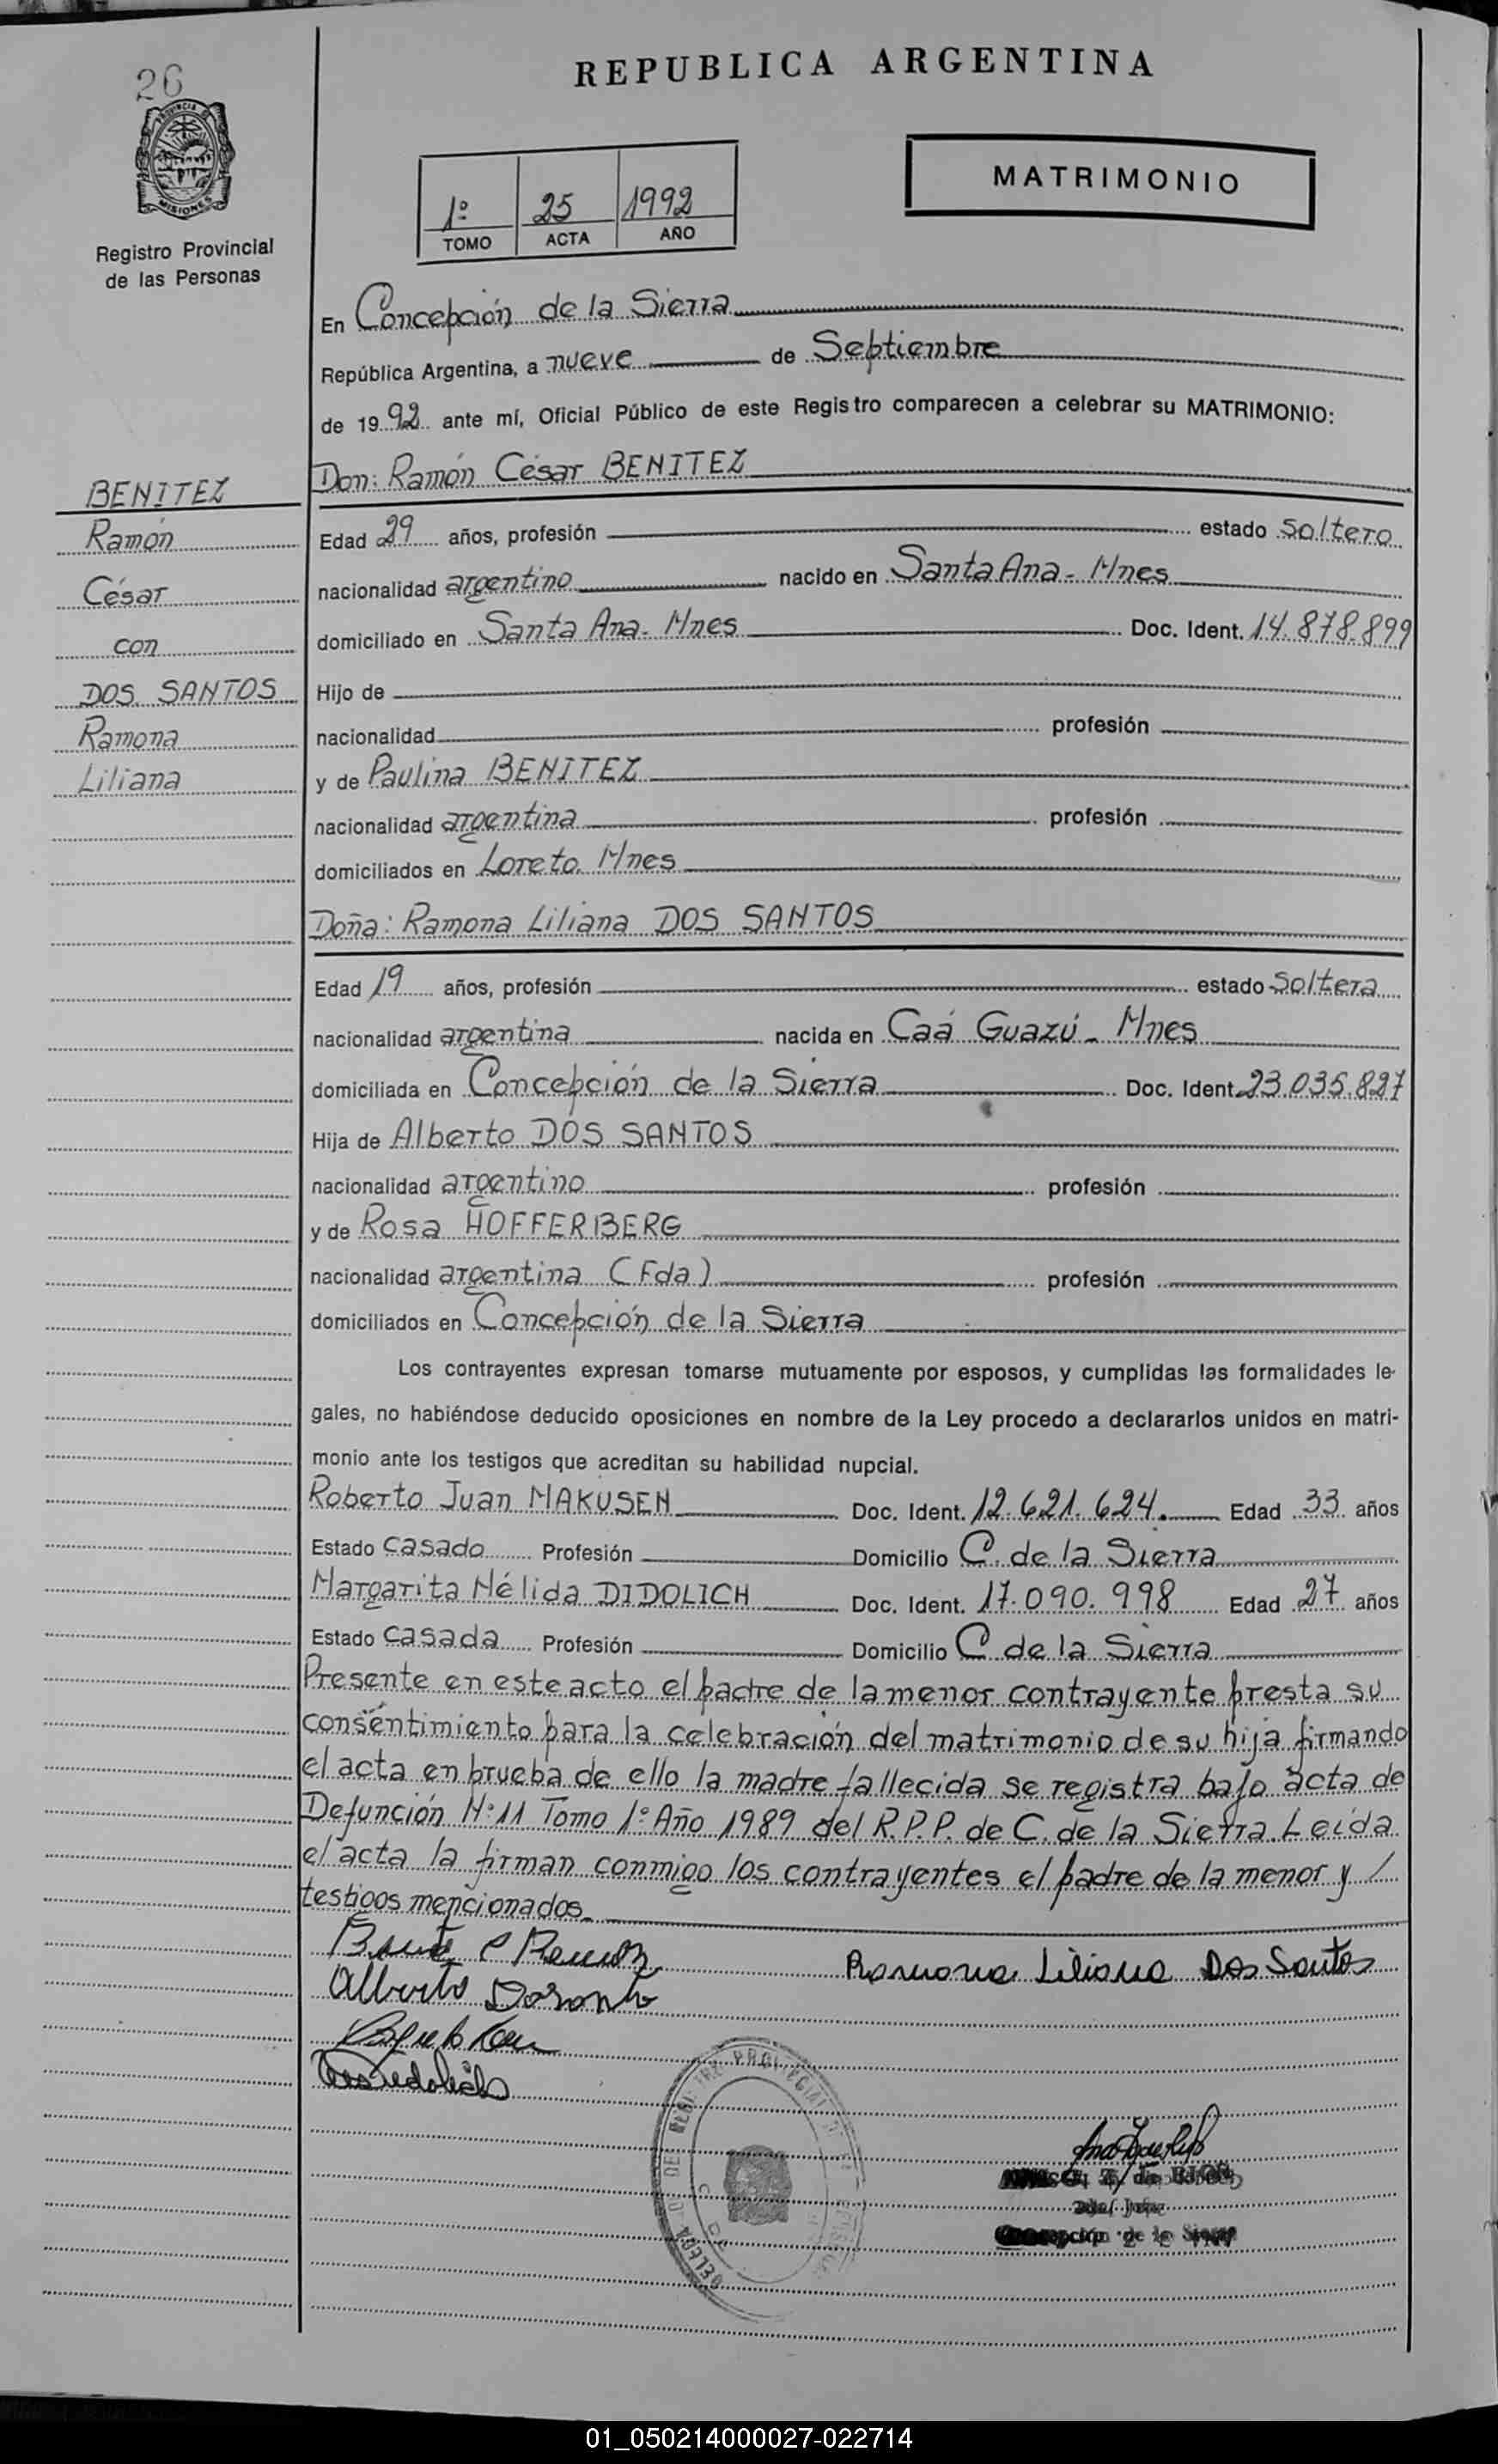 26
REPUBLICA ARGENTINA
PROVINCIA DE
MISIONES
Registro Provincial
de las Personas
1º 25 1992
TOMO ACTA AÑO
MATRIMONIO
En Concepción de la Sierra
República Argentina, a nueve de Septiembre
de 1992 ante mí, Oficial Público de este Registro comparecen a celebrar su MATRIMONIO:
BENITEZ
Ramón
César
con
DOS SANTOS
Ramona
Liliana
Don: Ramón César BENITEZ
Edad 29 años, profesión estado soltero
nacionalidad argentino nacido en Santa Ana - Mnes
domiciliado en Santa Ana - Mnes Doc. Ident. 14.878.899
Hijo de
nacionalidad profesión
y de Paulina BENITEZ
nacionalidad argentina profesión
domiciliados en Loreto Mnes
Doña: Ramona Liliana DOS SANTOS
Edad 19 años, profesión estado soltera
nacionalidad argentina nacida en Caá Guazú - Mnes
domiciliada en Concepción de la Sierra Doc. Ident. 23.035.827
Hija de Alberto DOS SANTOS
nacionalidad argentino profesión
y de Rosa HOFFERBERG
nacionalidad argentina (Fda) profesión
domiciliados en Concepción de la Sierra
Los contrayentes expresan tomarse mutuamente por esposos, y cumplidas las formalidades le-
gales, no habiéndose deducido oposiciones en nombre de la Ley procedo a declararlos unidos en matri-
monio ante los testigos que acreditan su habilidad nupcial.
Roberto Juan MAKUSEN Doc. Ident. 12.621.624. Edad 33 años
Estado casado Profesión Domicilio C. de la Sierra
Margarita Nélida DIDOLICH Doc. Ident. 17.090.998 Edad 27 años
Estado casada Profesión Domicilio C de la Sierra
Presente en este acto el padre de la menor contrayente presta su
consentimiento para la celebración del matrimonio de su hija firmando
el acta en prueba de ello la madre fallecida se registra bajo acta de
Defunción Nº 11 Tomo 1º Año 1989 del R.P.P. de C. de la Sierra. Leída
el acta la firman conmigo los contrayentes el padre de la menor y /
testigos mencionados.
Ramona Liliana Dos Santos
Alberto
de la Sierra
01_050214000027-022714